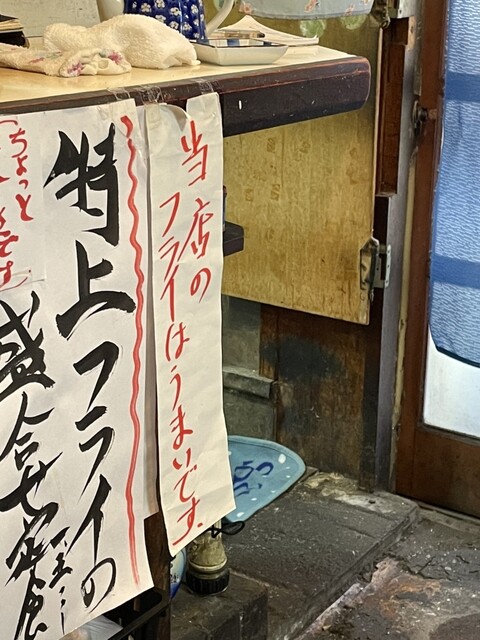 当店のフライはうまいです
特上フライの
盛合せ定食
ちょっと